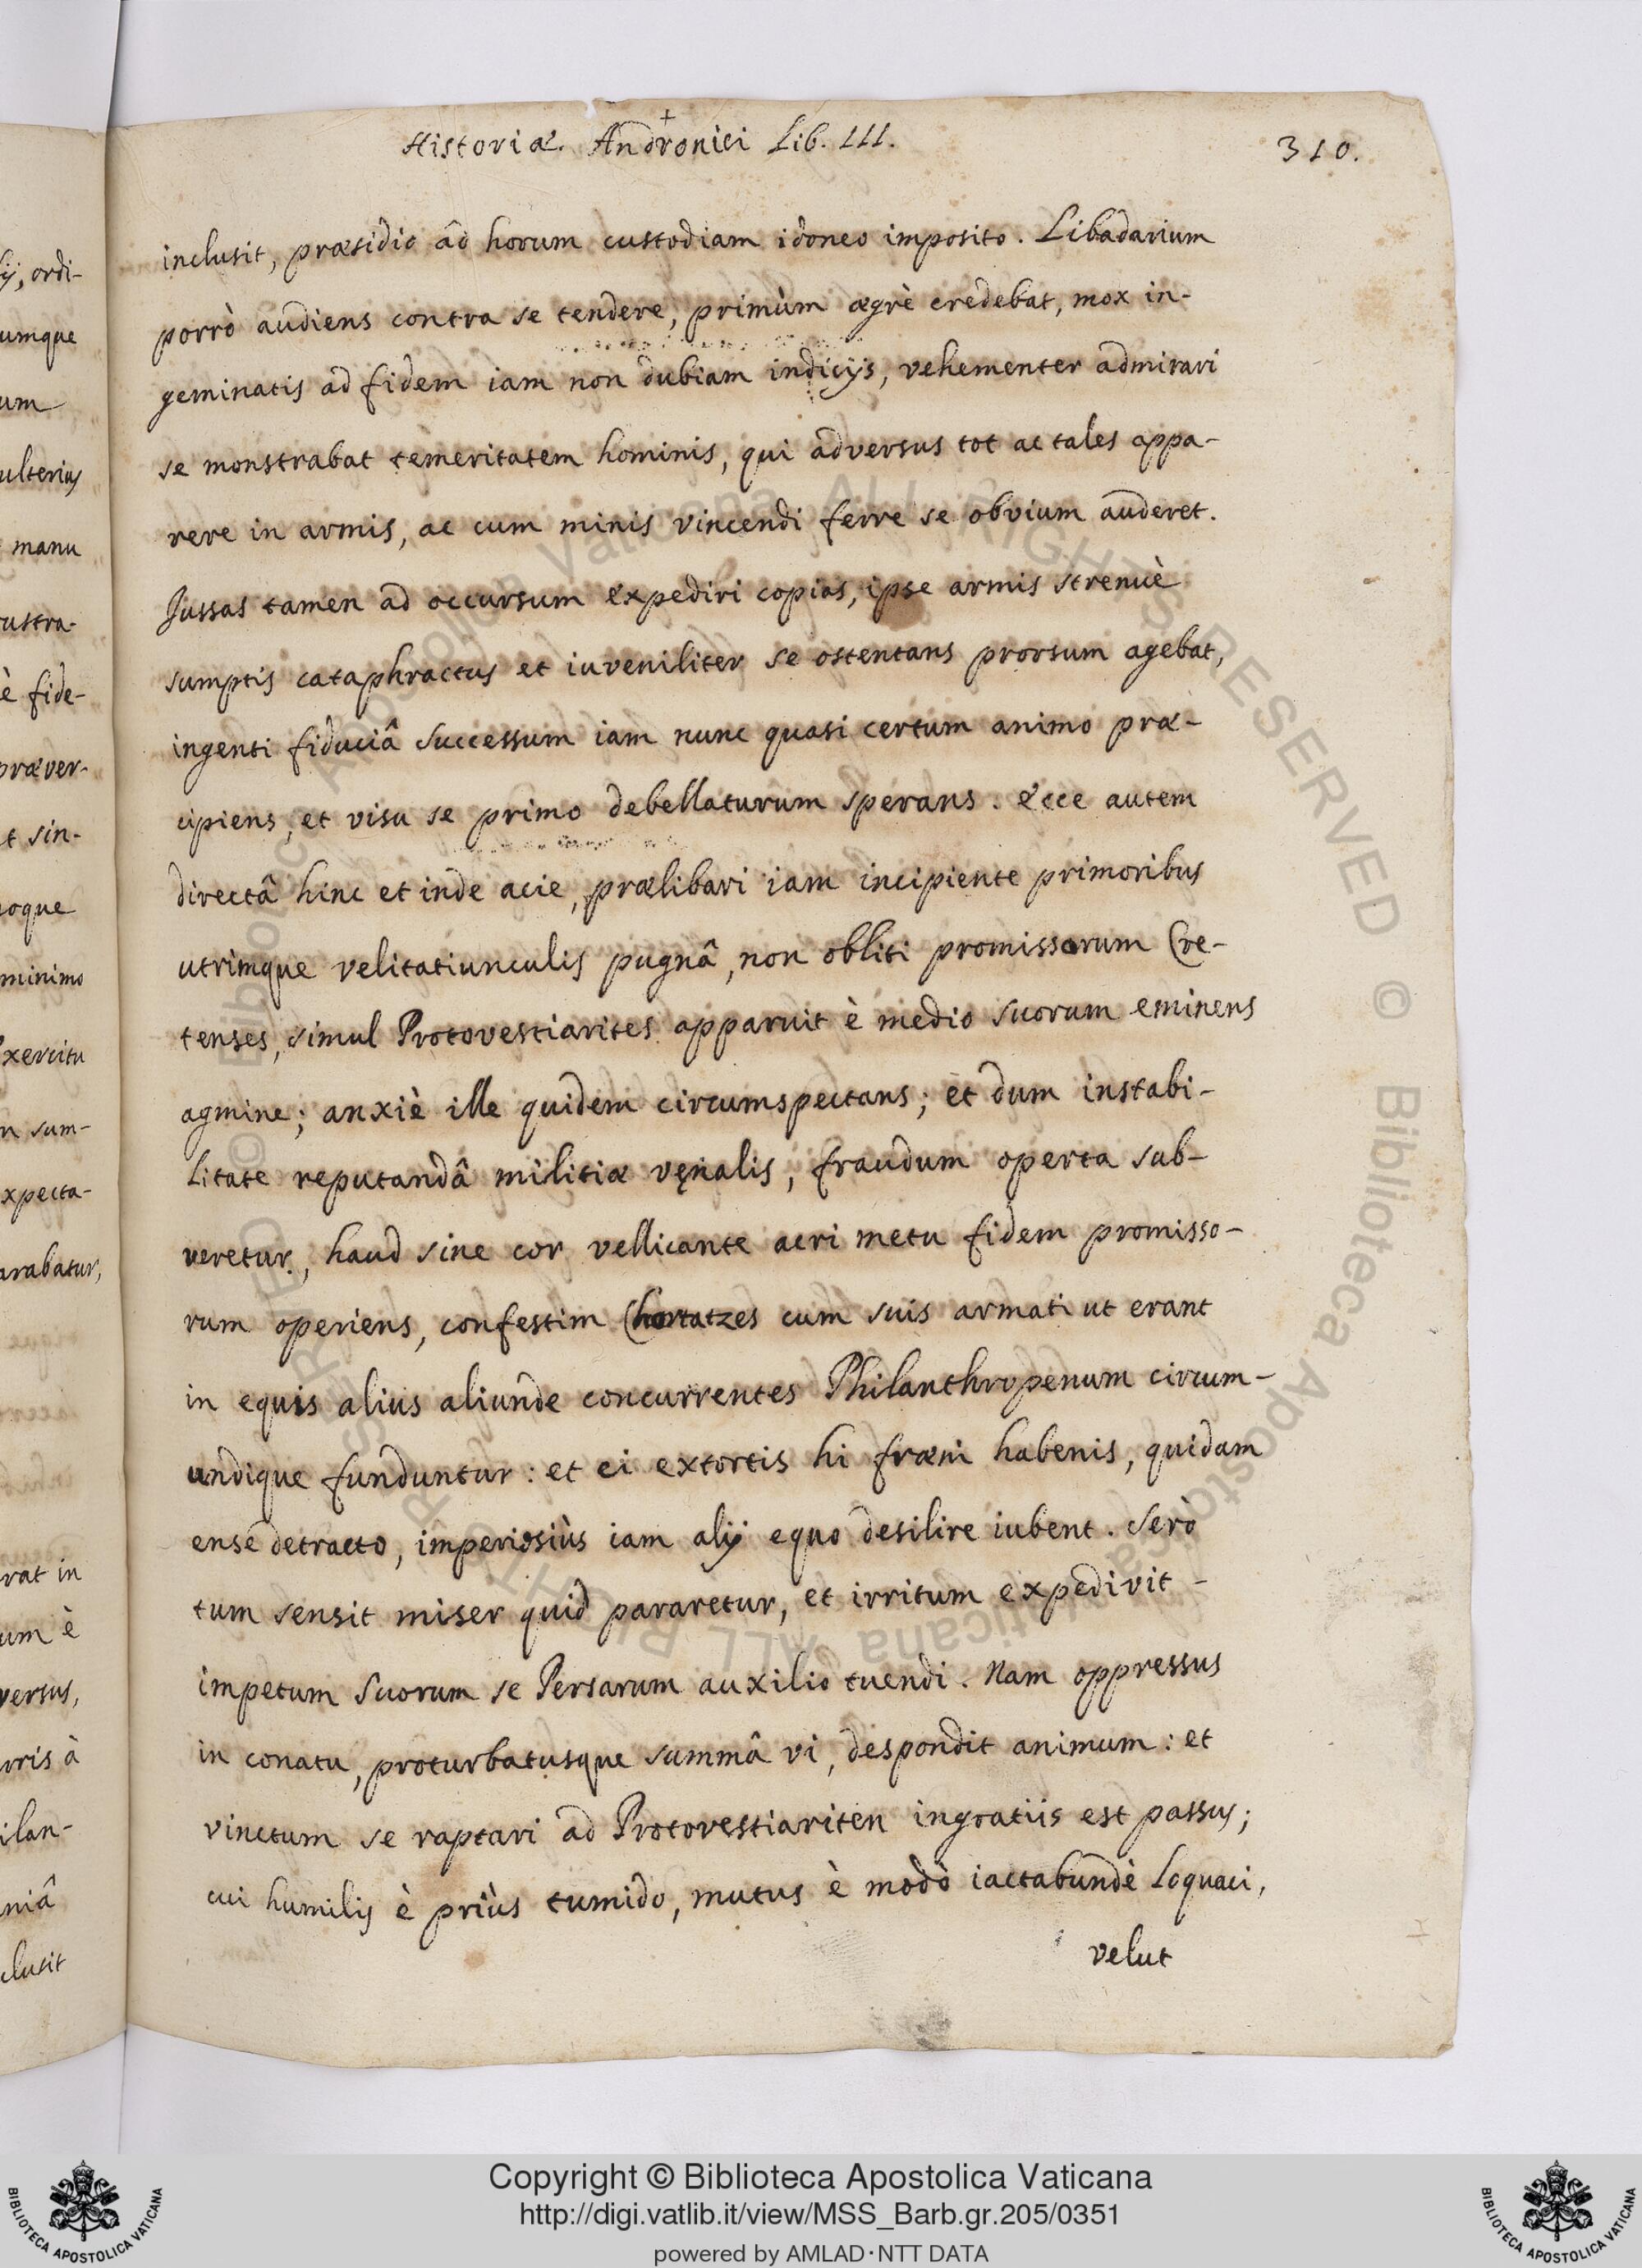 Historiæ Andronici Lib. III.
310.
inclusit, præsidio ad horum custodiam idoneo imposito. Libadarium
porrò audiens contra se tendere, primùm ægrè credebat, mox in-
geminatis ad fidem iam non dubiam indicijs, vehementer admirari
se monstrabat temeritatem hominis, qui adversus tot ac tales appa-
rere in armis, ac cum minis vincendi ferre se obvium auderet.
Jussas tamen ad occursum expediri copias, ipse armis strenuè
sumptis cataphractus et iuveniliter se ostentans prorsum agebat,
ingenti fiduciâ successum iam nunc quasi certum animo præ-
cipiens, et visu se primo debellaturum sperans. Ecce autem
directâ hinc et inde acie, prælibari iam incipiente primoribus
utrimque velitatiunculis pugnâ, non obliti promissorum Cre-
tenses, simul Protovestiarites apparuit è medio suorum eminens
agmine; anxiè ille quidem circumspectans; et dum instabi-
litate reputandâ militiæ venalis, fraudum operta sub-
veretur, haud sine cor vellicante acri metu fidem promisso-
rum operiens, confestim Chortatzes cum suis armati ut erant
in equis alius aliunde concurrentes Philanthropenum circum-
undique funduntur: et ei extortis hi fræni habenis, quidam
ense detracto, imperiosiùs iam alij equo desilire iubent. Serò
tum sensit miser quid pararetur, et irritum expedivit -
impetum suorum se Persarum auxilio tuendi. Nam oppressus
in conatu, proturbatusque summâ vi, despondit animum: et
vinctum se raptari ad Protovestiariten ingratiis est passus;
cui humilis è priùs tumido, mutus è modò iactabundè loquaci,
velut
ij, ordi-
umque
um
ulterius
manu
rustra-
è fide-
præver-
t sin-
oque
minimo
xercitu
n sum-
xpecta-
arabatur,
rat in
um è
versus,
rris à
ilan-
niâ
clusit
Copyright © Biblioteca Apostolica Vaticana
http://digi.vatlib.it/view/MSS_Barb.gr.205/0351
powered by AMLAD·NTT DATA
BIBLIOTECA APOSTOLICA VATICANA
BIBLIOTECA APOSTOLICA VATICANA
© Biblioteca Apostolica Vaticana ALL RIGHTS RESERVED © Biblioteca Apostolica Vaticana ALL RIGHTS RESERVED